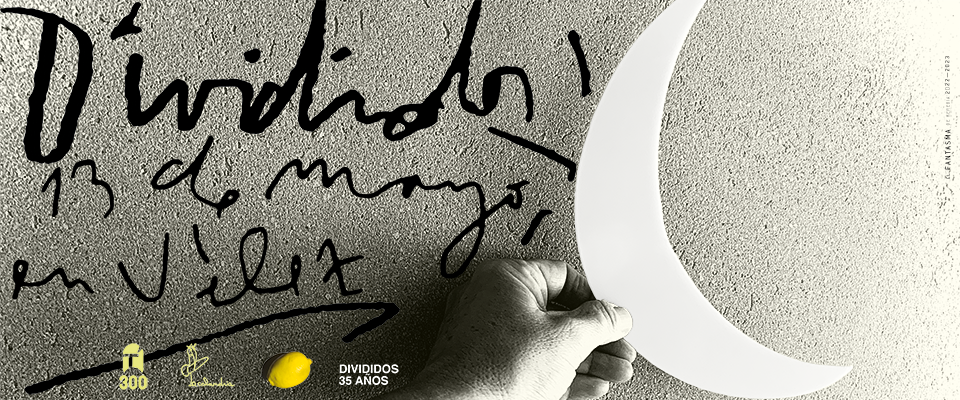 Divididos!
13 de mayo,
en Vélez
T
300
DIVIDIDOS
35 AÑOS
FANTASMA
2022–2023